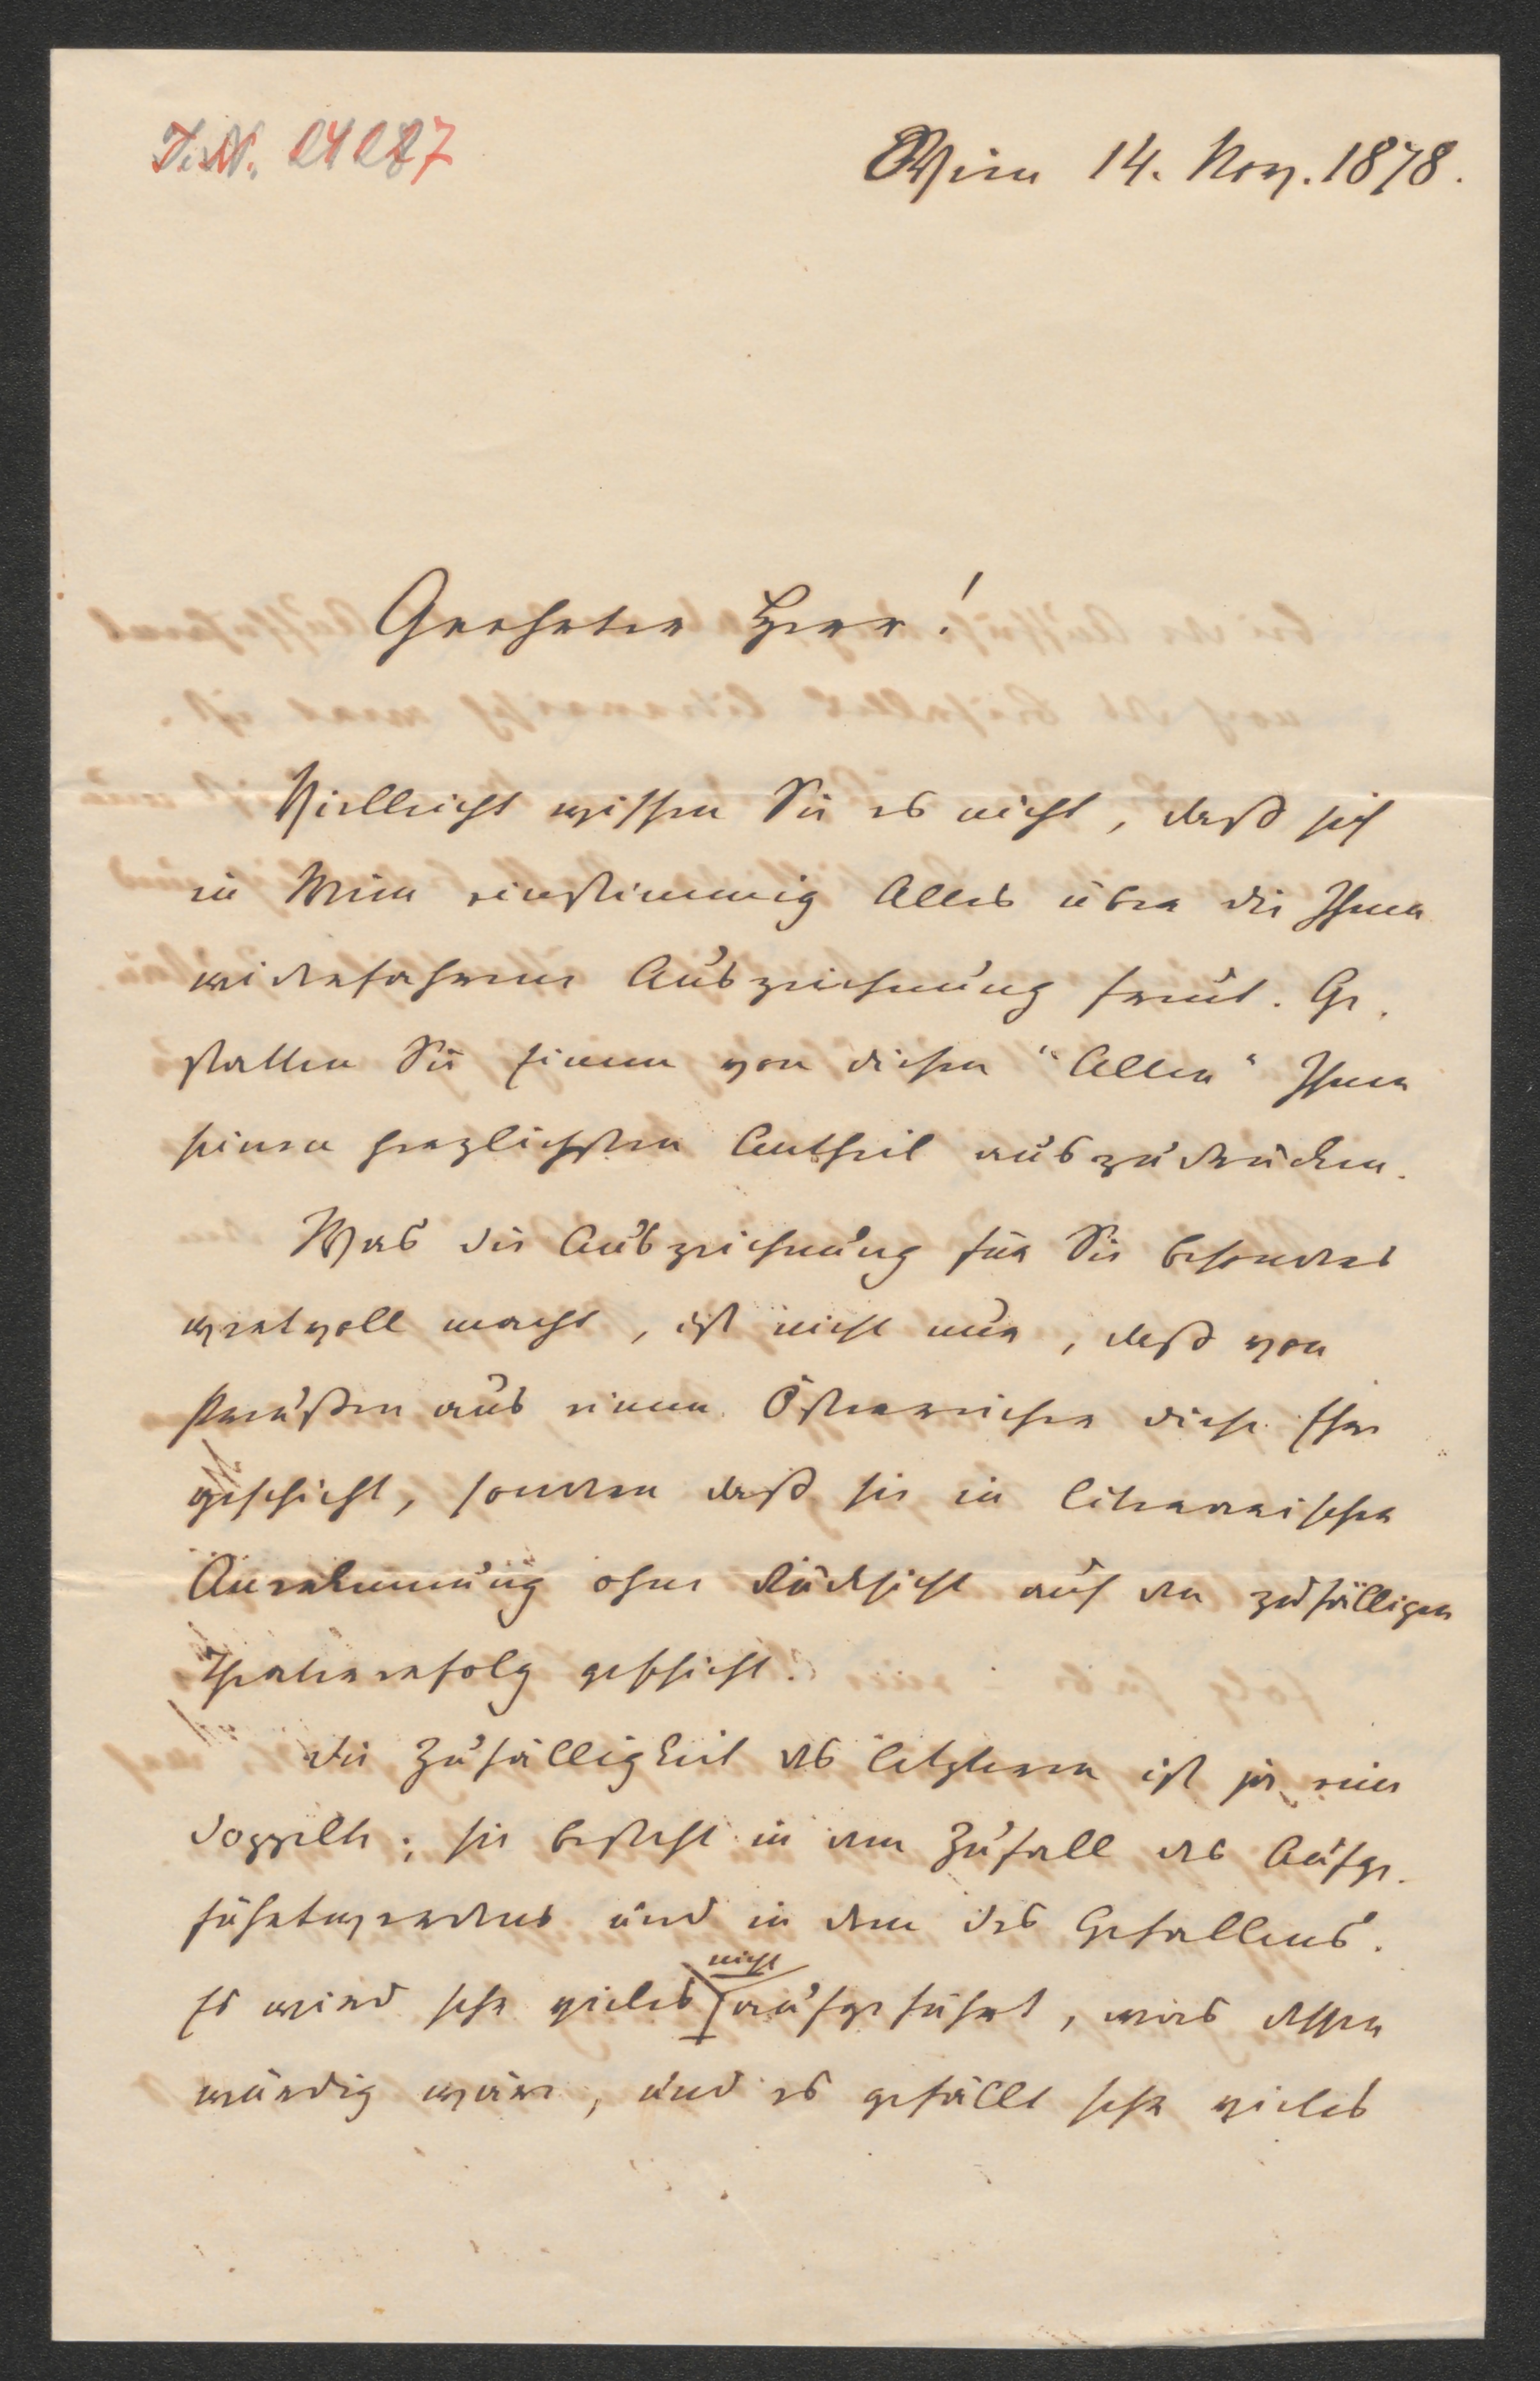 J. N. 24287
Wien 14. Nov. 1878.
Geehrter Herr!
Vielleicht wissen Sie es nicht, daß sich
in Wien einstimmig Alles über die Ihnen
widerfahrene Auszeichnung freut. Ge-
statten Sie Einem von diesen "Allen" Ihnen
seinen herzlichsten Antheil auszudrücken.
Was die Auszeichnung für Sie besonders
wertvoll macht, ist nicht nur, daß von
Preußen aus einem Österreicher diese Ehre
geschieht, sondern daß sie in literarischer
Anerkennung ohne Rücksicht auf den zufälligen
Theatererfolg geschieht.
Die Zufälligkeit des letzteren ist ja eine
doppelte; sie besteht in dem Zufall des Aufge-
führtwerdens und in dem des Gefallens.
nicht
Es wird sehr vieles aufgeführt, was dessen
würdig wäre, und es gefällt sehr vieles